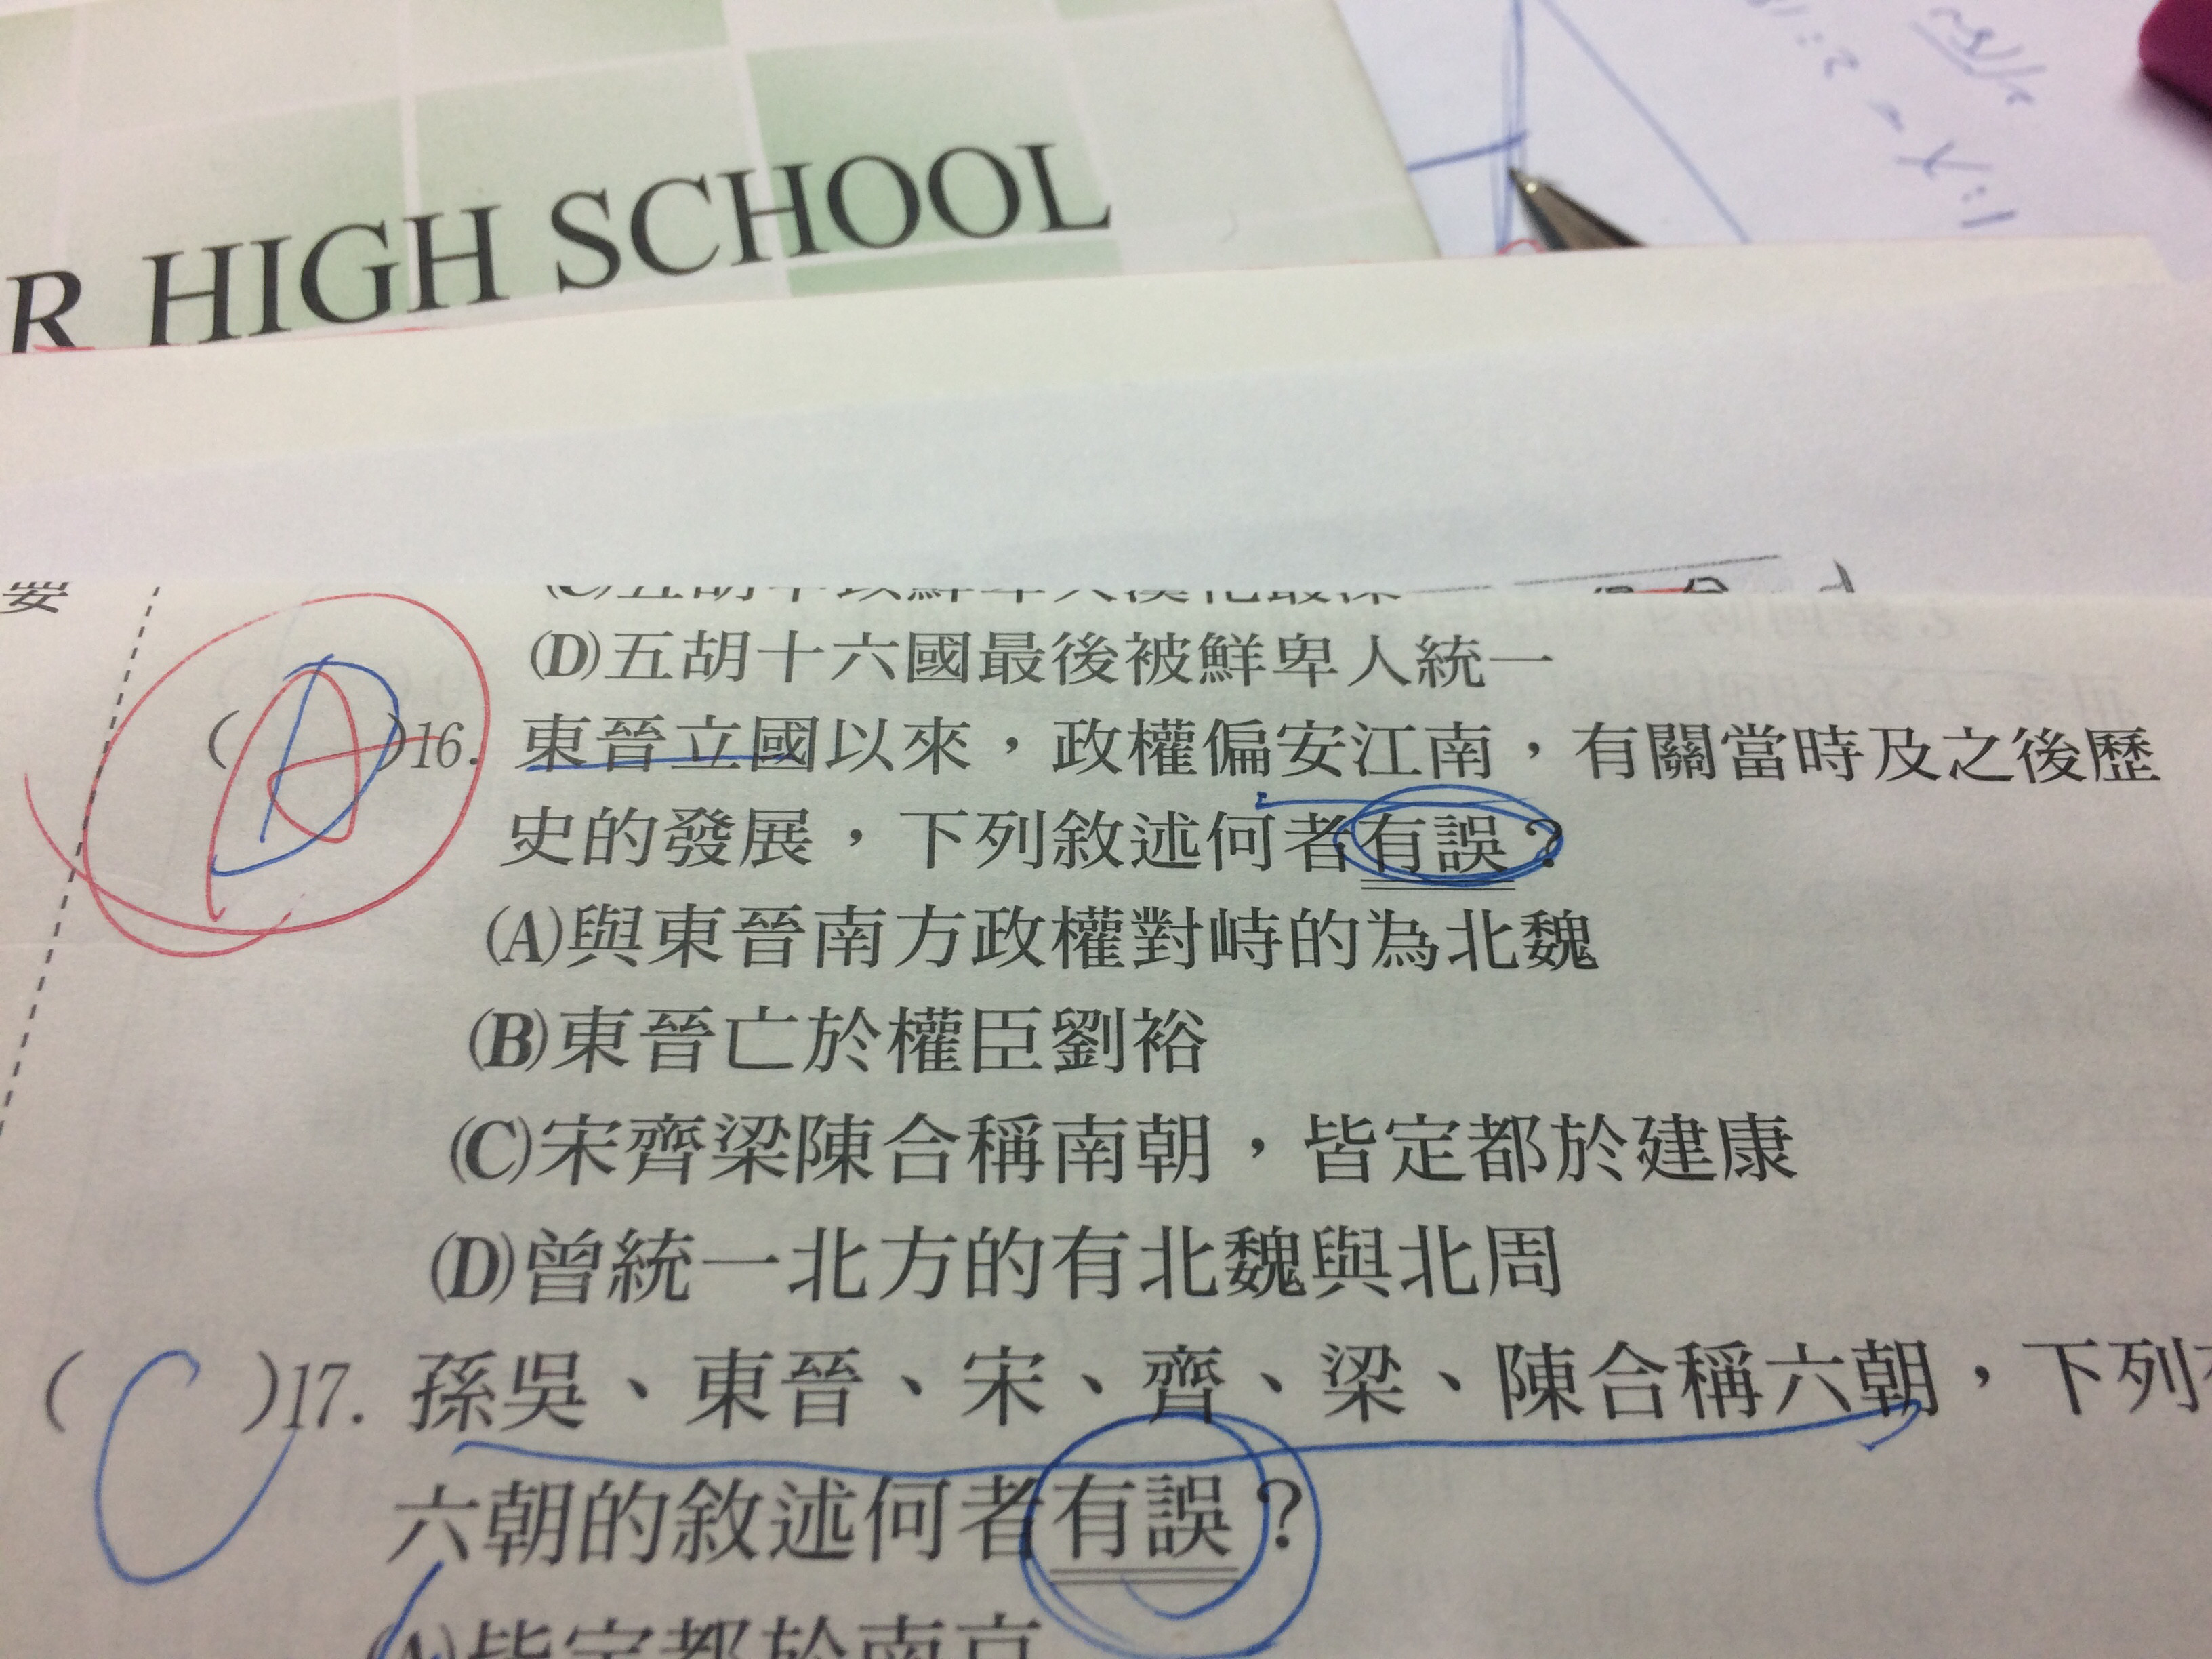 R HIGH SCHOOL
要
(D)五胡十六國最後被鮮卑人統一
(A)16. 東晉立國以來，政權偏安江南，有關當時及之後歷
史的發展，下列敘述何者有誤？
(A)與東晉南方政權對峙的為北魏
(B)東晉亡於權臣劉裕
(C)宋齊梁陳合稱南朝，皆定都於建康
(D)曾統一北方的有北魏與北周
(C)17. 孫吳、東晉、宋、齊、梁、陳合稱六朝，下列
六朝的敘述何者有誤？
(A)皆定都於南京